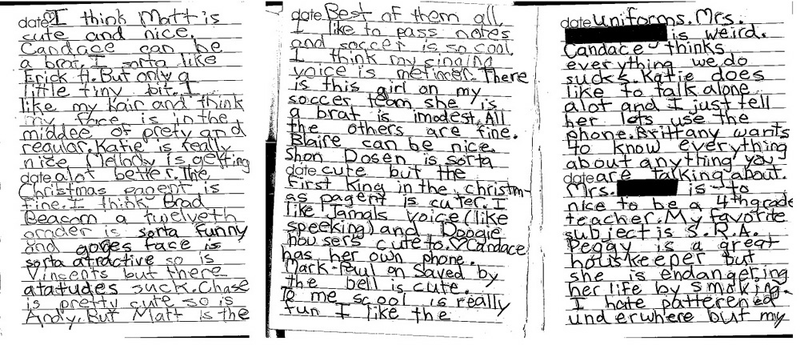 date I think Matt is
cute and nice.
Candace can be
a brat. I sorta like
Erick H. But only a
little tiny bit. I
like my hair and think
my face is in the
middee of prety and
regular. Katie is really
nice. Melody is getting
date alot better. The
Christmas pagent is
fine. I think Brad
Beacom a twelveth
grader is sorta funny
and gorges face is
sorta attractive so is
Vincents but there
atatudes suck. Chase
is pretty cute so is
Andy. But Matt is the
date Best of them all.
I like to pass notes
and soccer is so cool.
I think my singing
voice is There
is this girl on my
soccer team she is
a brat is imodest. All
the others are fine.
Blaire can be nice.
Shon Dosen is sorta
date cute but the
first King in the christm-
as pagent is cuter. I
like Jamals voice (like
speeking) and Doogie
howsers cute to. Candace
has her own phone.
Mark-Paul on Saved by
the bell is cute.
To me scool is really
fun I like the
date uniforms. Mrs.
is weird.
Candace thinks
everything we do
sucks. Katie does
like to talk alone
alot and I just tell
her lets use the
phone. Brittany wants
to know everything
about anything you
date are talking about.
Mrs. is to
nice to be a 4th grade
teacher. My favorite
subject is S.R.A.
Peggy is a great
houskeeper but
she is endangering
her life by smoking.
I hate patterened
underwhere but my